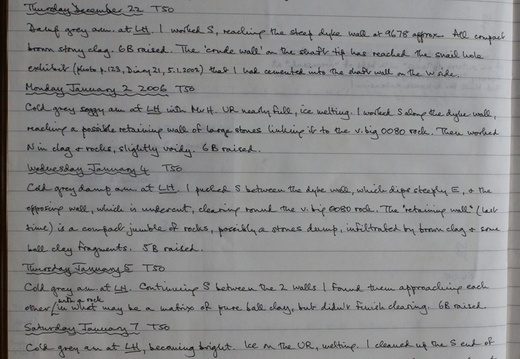 Thursday December 22 TSO
Damp grey a.m. at LH. I worked S, reaching the steep dyke wall at 9678 approx. All compact
brown stony clag. 6B raised. The 'crude wall' on the shaft tip has reached the snail hole
exhibit (photo p.123, Diary 21, 5.1.2002) that I had cemented into the shaft wall on the W side.
Monday January 2 2006 TSO
Cold grey soggy a.m. at LH with Mr H. UR nearly full, ice melting. I worked S along the dyke wall,
reaching a possible retaining wall of large stones linking it to the v. big 0080 rock. Then worked
N in clag + rocks, slightly voidy. 6B raised.
Wednesday January 4 TSO
Cold grey damp a.m. at LH. I picked S between the dyke wall, which dips steeply E, + the
opposing wall, which is undercut, clearing round the v. big 0080 rock. The "retaining wall" (last
time) is a compact jumble of rocks, possibly a stones dump, infiltrated by brown clag + some
ball clay fragments. 5B raised.
Thursday January 5 TSO
Cold grey a.m. at LH. Continuing S between the 2 walls I found them approaching each
other / with a rock in what may be a matrix of pure ball clay, but didn't finish clearing. 6B raised.
Saturday January 7 TSO
Cold grey a.m. at LH, becoming bright. Ice on the UR, melting. I cleaned up the S end of